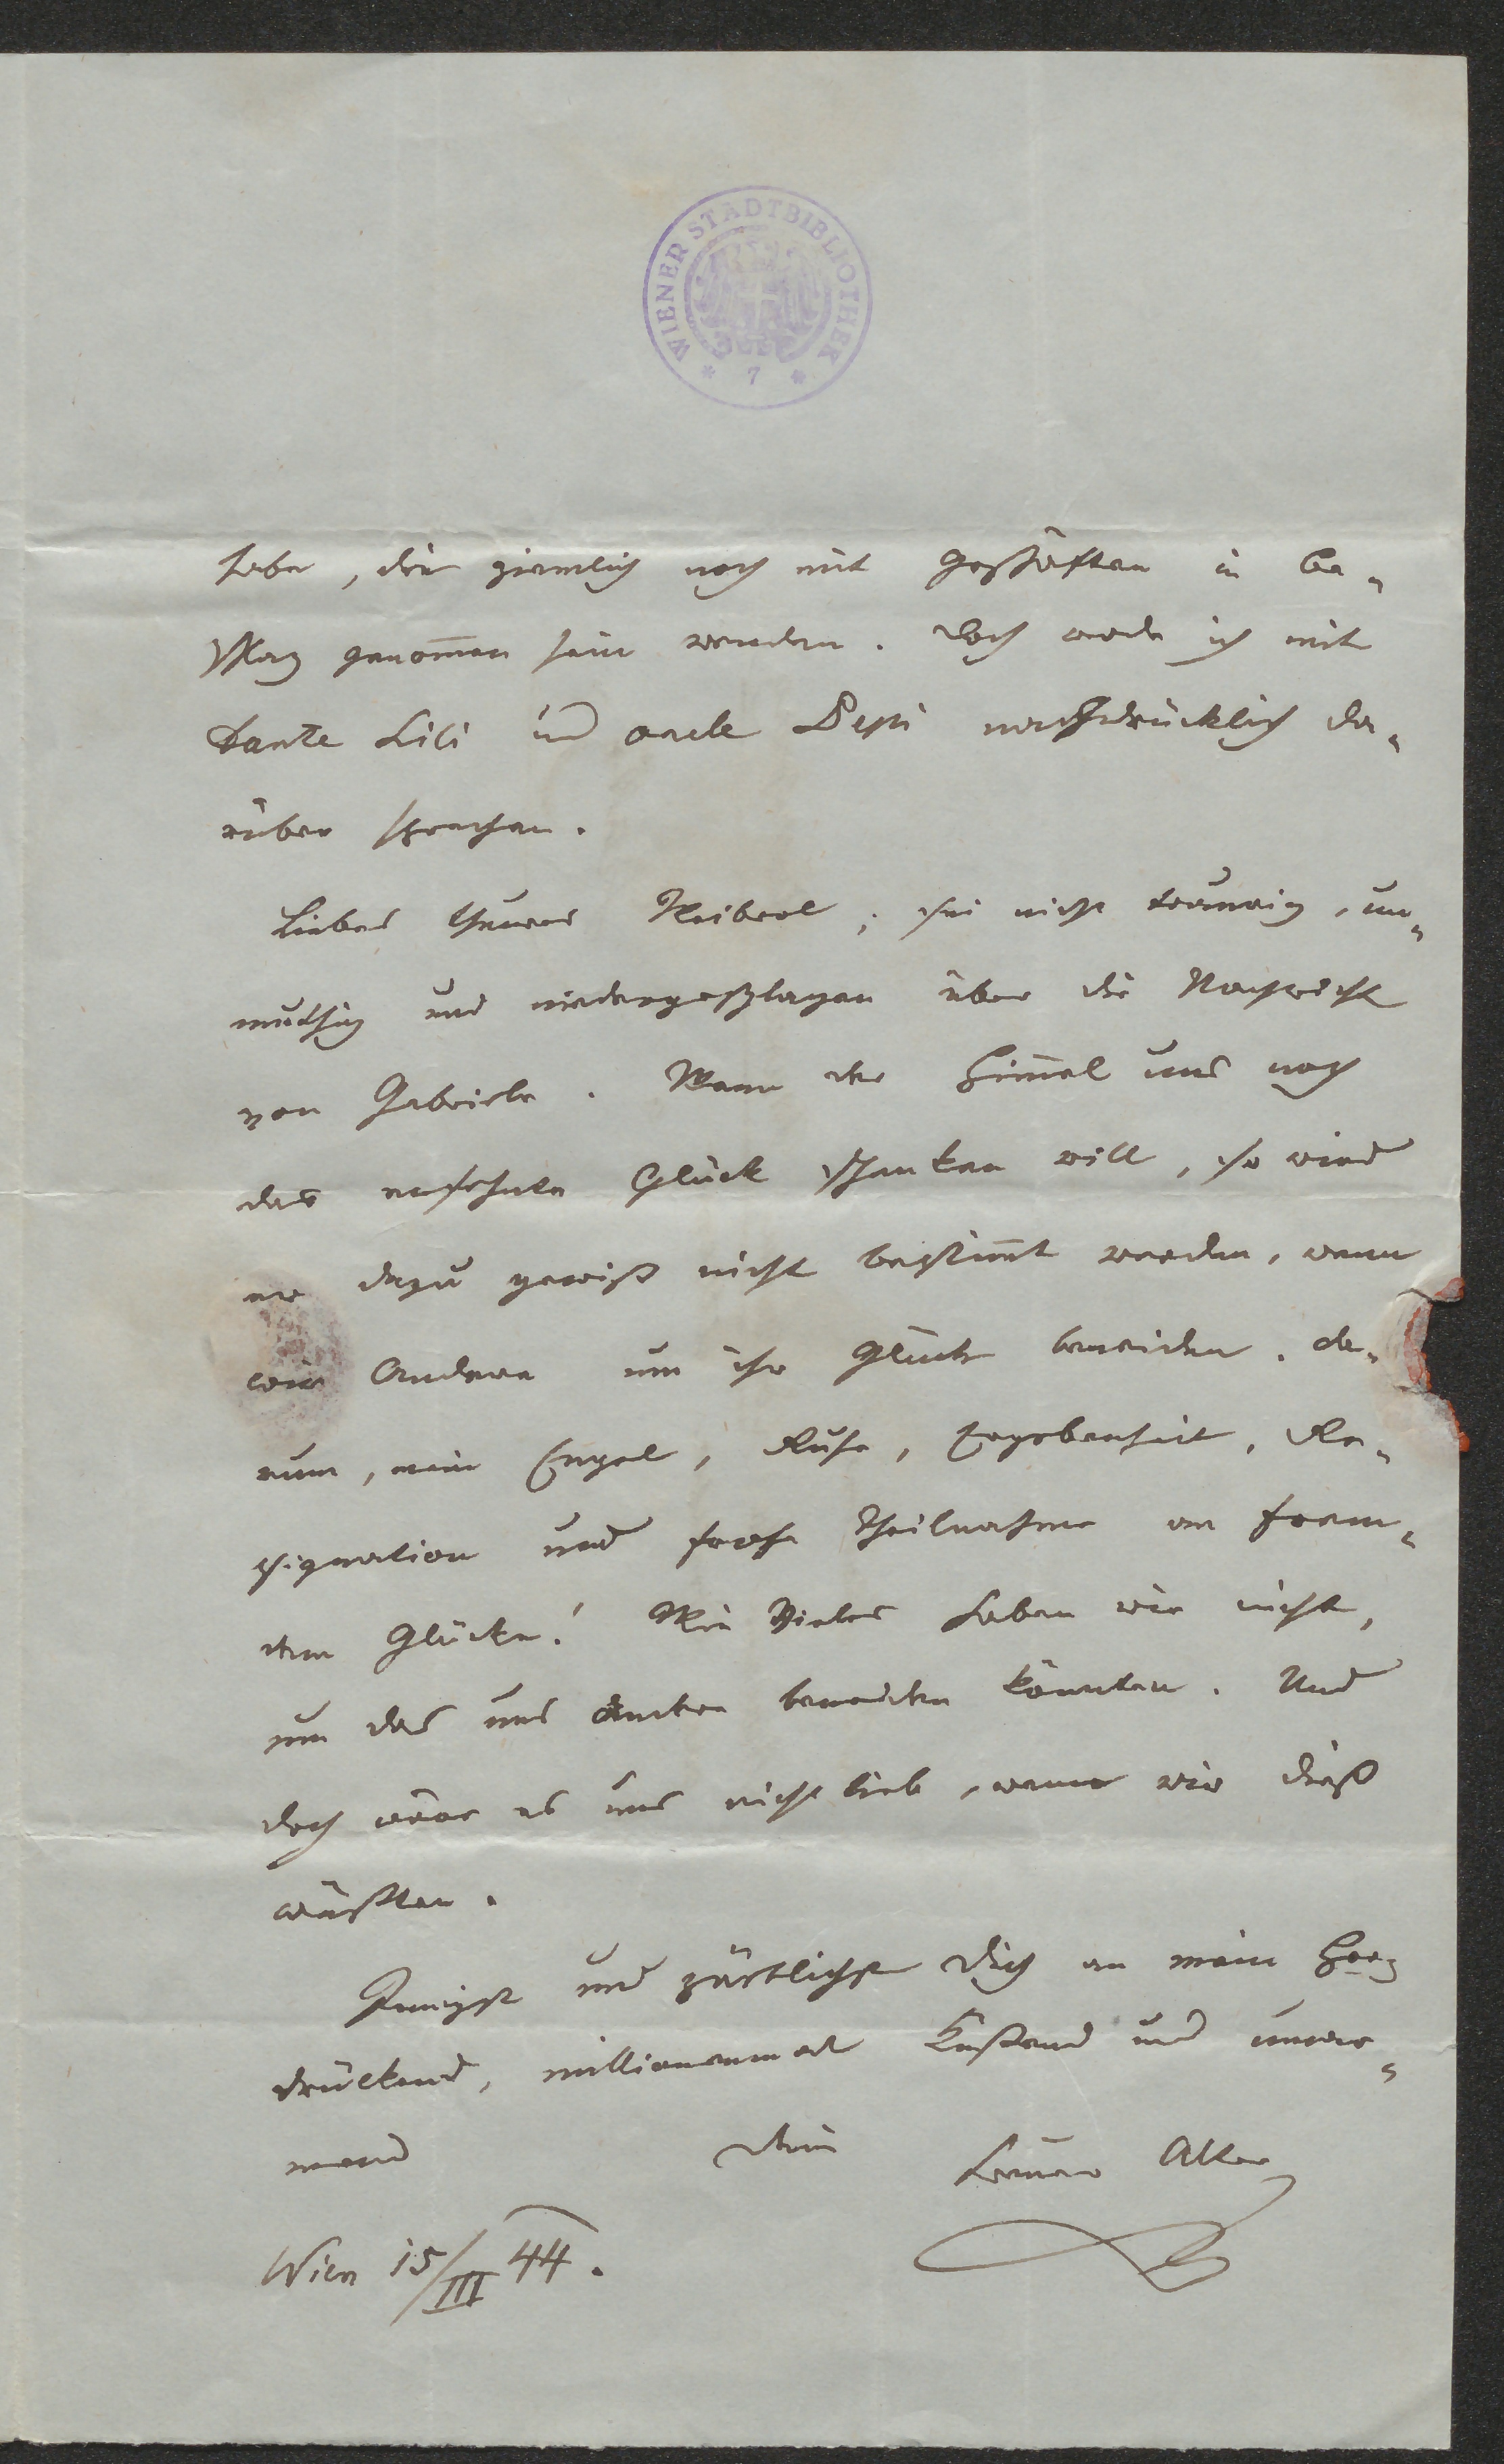 WIENER STADTBIBLIOTHEK
* 7 *
habe, die ziemlich noch mit Geschäften in Be-
schlag genom̅en sein werden. Doch werde ich mit
Tante Lili und Onkle Pepi nachdrücklich da-
rüber sprechen.
Liebes theures Weiberl, sei nicht traurig, un-
muthig und niedergeschlagen über die Nachricht
von Gabriele. Wenn der Him̅el uns noch
das ersehnte Glück schenken will, so wird
er dazu gewiß nicht bestim̅t werden, wenn
wir Andere um ihr Glück beneiden. Da-
rum, mein Engel, Ruhe, Ergebenheit, Re-
signation und frohe Theilnahme an frem-
dem Glücke! Wie Vieles haben wir nicht,
um das uns Andere beneiden könnten. Und
doch wäre es uns nicht lieb, wenn wir dieß
wüßten.
Innigst und zärtlichst Dich an mein Herz
drückend, millionenmal küßend und umar-
mend Dein treuer Alter
Wien 15/III 44.